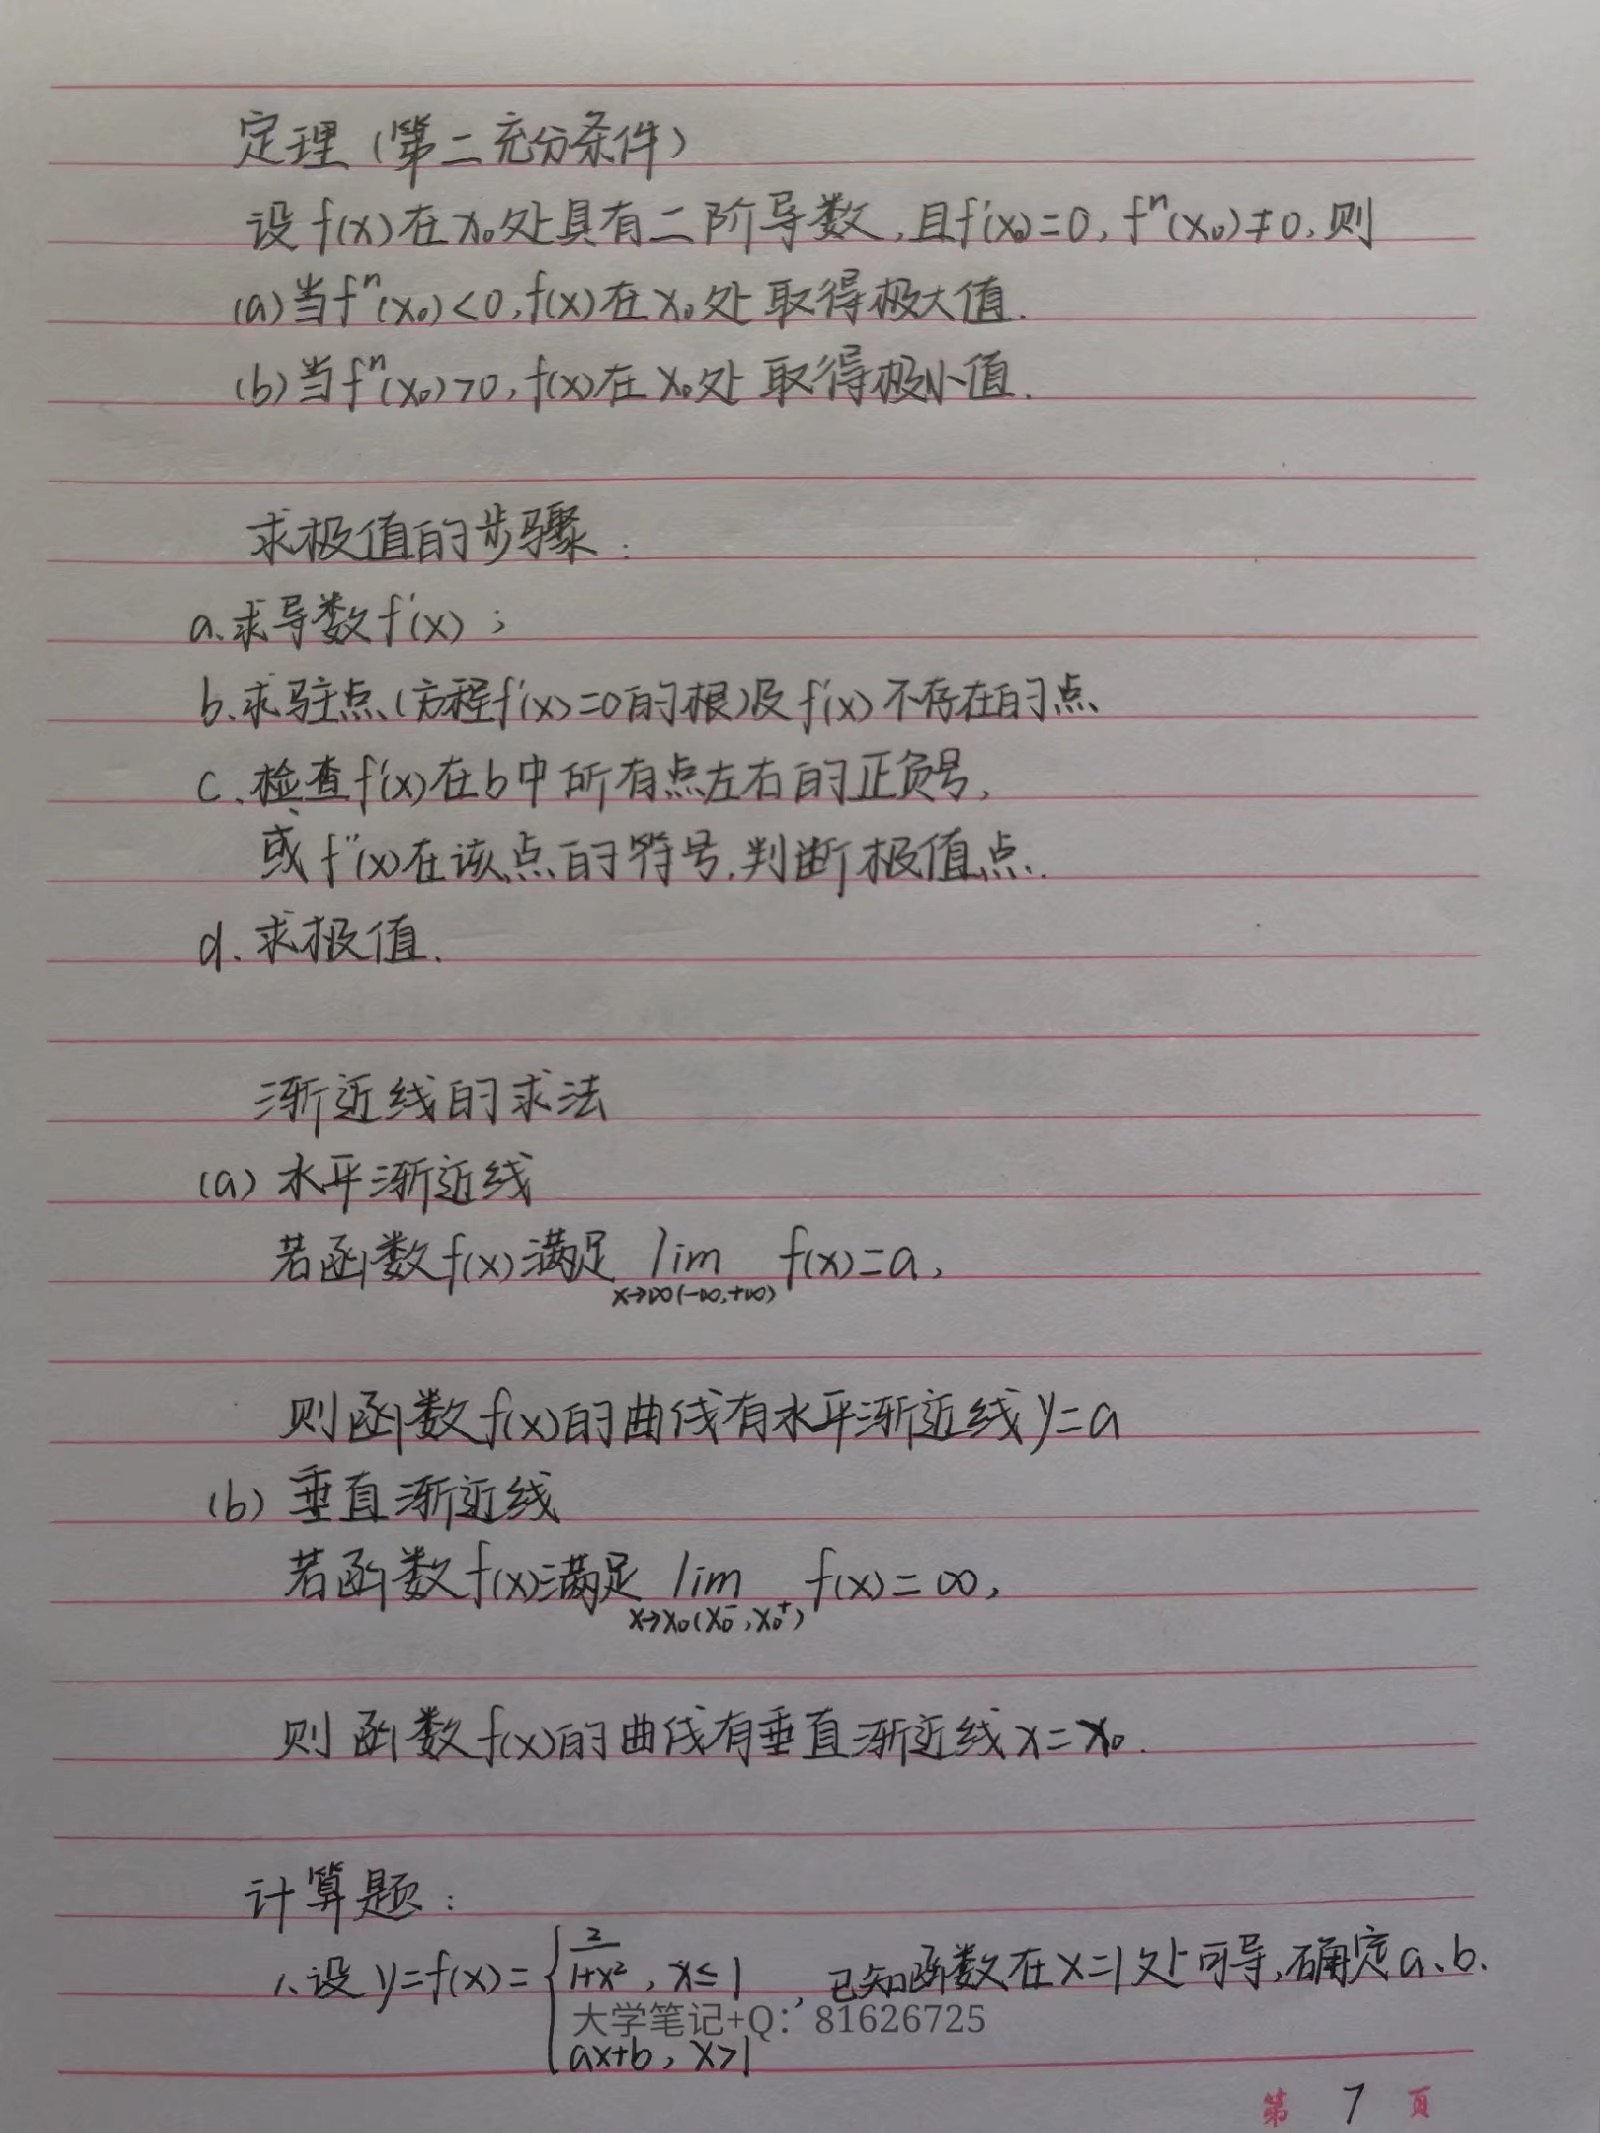 定理（第二充分条件）
设f(x)在x₀处具有二阶导数,且f'(x₀)=0,fⁿ(x₀)≠0,则
(a)当fⁿ(x₀)<0,f(x)在x₀处取得极大值.
(b)当fⁿ(x₀)>0,f(x)在x₀处取得极小值.
求极值的步骤：
a.求导数f'(x)；
b.求驻点(方程f'(x)=0的根)及f'(x)不存在的点、
c.检查f'(x)在b中所有点左右的正负号,
或f''(x)在该点的符号,判断极值点.
d.求极值.
渐近线的求法
(a) 水平渐近线
若函数f(x)满足 lim f(x)=a,
x→∞(-∞,+∞)
则函数f(x)的曲线有水平渐近线y=a
(b) 垂直渐近线
若函数f(x)满足 lim f(x)=∞,
x→x₀(x₀⁻,x₀⁺)
则函数f(x)的曲线有垂直渐近线x=x₀.
计算题：
1.设y=f(x)={2/(1+x²), x≤1 ,已知函数在x=1处可导,确定a、b.
大学笔记+Q：81626725
ax+b, x>1
第 7 页